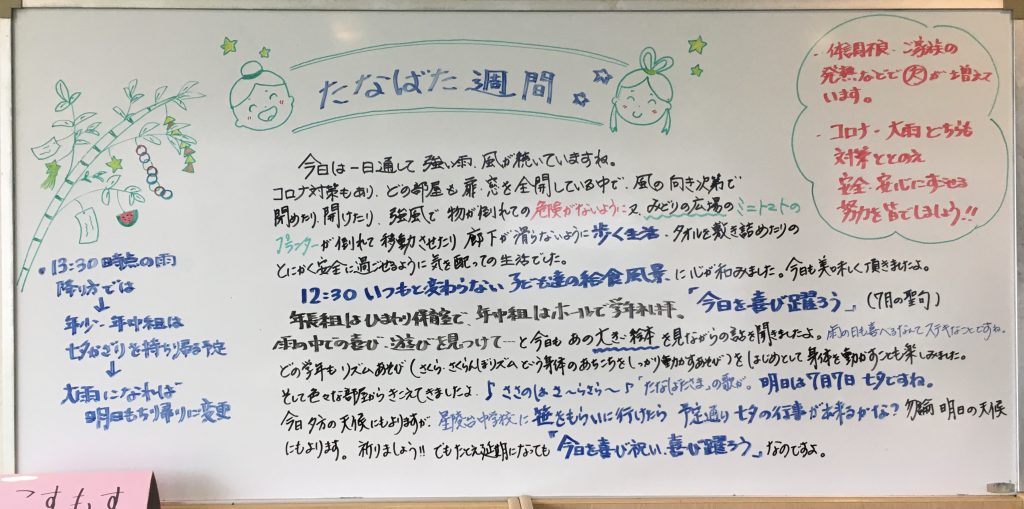 たなばた週間
・体調不良・ご家族の
発熱などで欠が増えて
います。
・コロナ・大雨どちらも
対策ととのえ
安全・安心にすごせる
努力を皆でしましょう!!
・13:30時点の雨
降り方では
↓
年少・年中組は
七夕かざりを持ち帰る予定
↓
大雨になれば
明日もち帰りに変更
今日は一日通して強い雨、風が続いていますね。
コロナ対策もあり、どの部屋も扉、窓を全開している中で、風の向き次第で
閉めたり、開けたり、強風で物が倒れての危険がないように又、みどりの広場のミニトマトの
プランターが倒れて移動させたり廊下が滑らないように歩く生活、タオルを敷き詰めたりの
とにかく安全に過ごせるように気を配っての生活でした。
12:30 いつもと変わらない子ども達の給食風景に心が和みました。今日も美味しく頂きましたよ。
年長組はひまわり保育室で、年中組はホールで学年礼拝。「今日を喜び躍ろう」(7月の聖句)
雨の中での喜び、遊びを見つけて…と今日もあの大きい絵本を見ながらの話を聞きましたよ。雨の日も喜べるなんてステキなことですね。
どの学年もリズムあそび(さくら・さくらんぼリズムどう身体のあちこちをしっかり動かすあそび)をはじめとして身体を動かすことも楽しみました。
そして色々な部屋からきこえてきましたよ♪ささのはさ〜らさら〜♪「たなばたさま」の歌が。明日は7月7日七夕ですね。
今日夕方の天候にもよりますが、星陵台中学校に笹をもらいに行けたら予定通り七夕の行事が出来るかな?勿論明日の天候
にもよります。祈りましょう!!でもたとえ延期になっても「今日を喜び祝い、喜び躍ろう」なのですよ。
こすもす